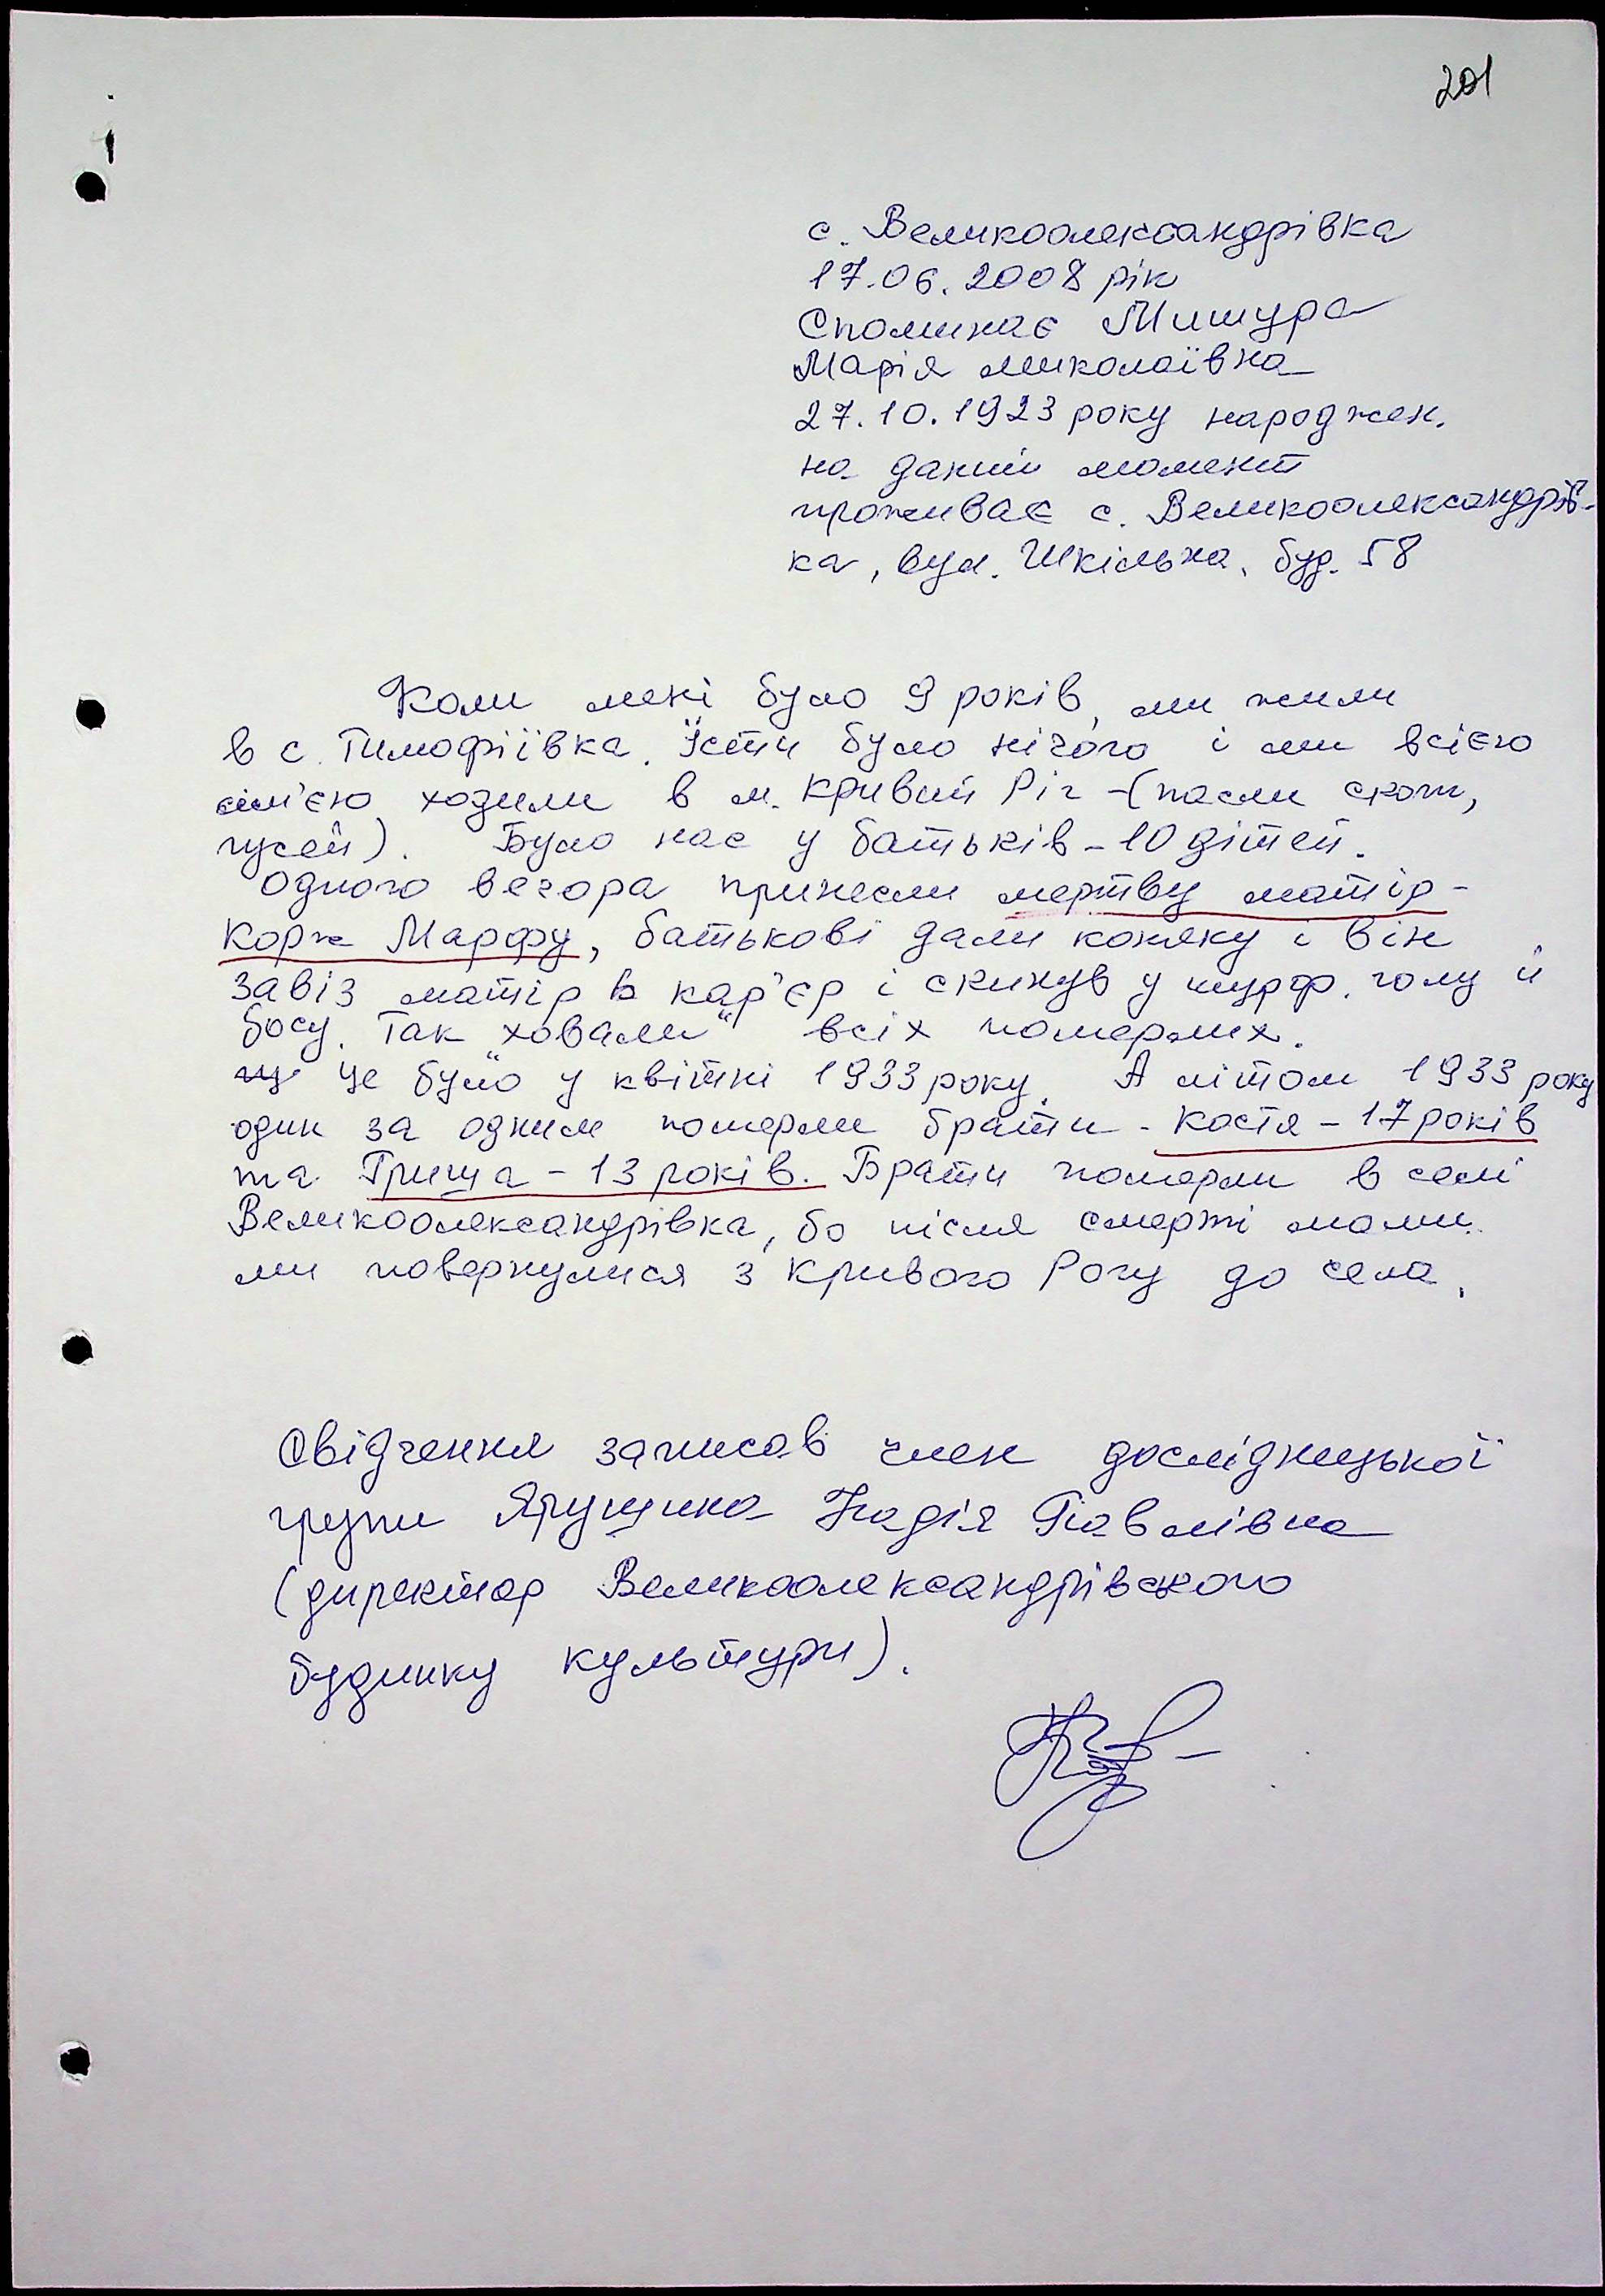 201
с. Великоолександрівка
17.06.2008 рік
Споминає Мишура
Марія Миколаївна
27.10.1923 року народжен.
на даний момент
проживає с. Великоолександрів-
ка, вул. Шкільна, буд. 58
Коли мені було 9 років, ми жили
в с. Тимофіївка. Їсти було нічого і ми всією
сім'єю ходили в м. Кривий Ріг - (пасли скот,
гусей). Було нас у батьків - 10 дітей.
Одного вечора принесли мертву матір -
Корж Марфу, батькові дали коняку і він
завіз матір в кар'єр і скинув у шурф, голу й
босу. Так "ховали" всіх померлих.
Це було у квітні 1933 року. А літом 1933 року
один за одним померли брати - Костя - 17 років
та Гриша - 13 років. Брати померли в селі
Великоолександрівка, бо після смерті мами
ми повернулися з Кривого Рогу до села.
Свідчення записав член дослідницької
групи Ярущина Надія Павлівна
(директор Великоолександрівського
будинку культури).